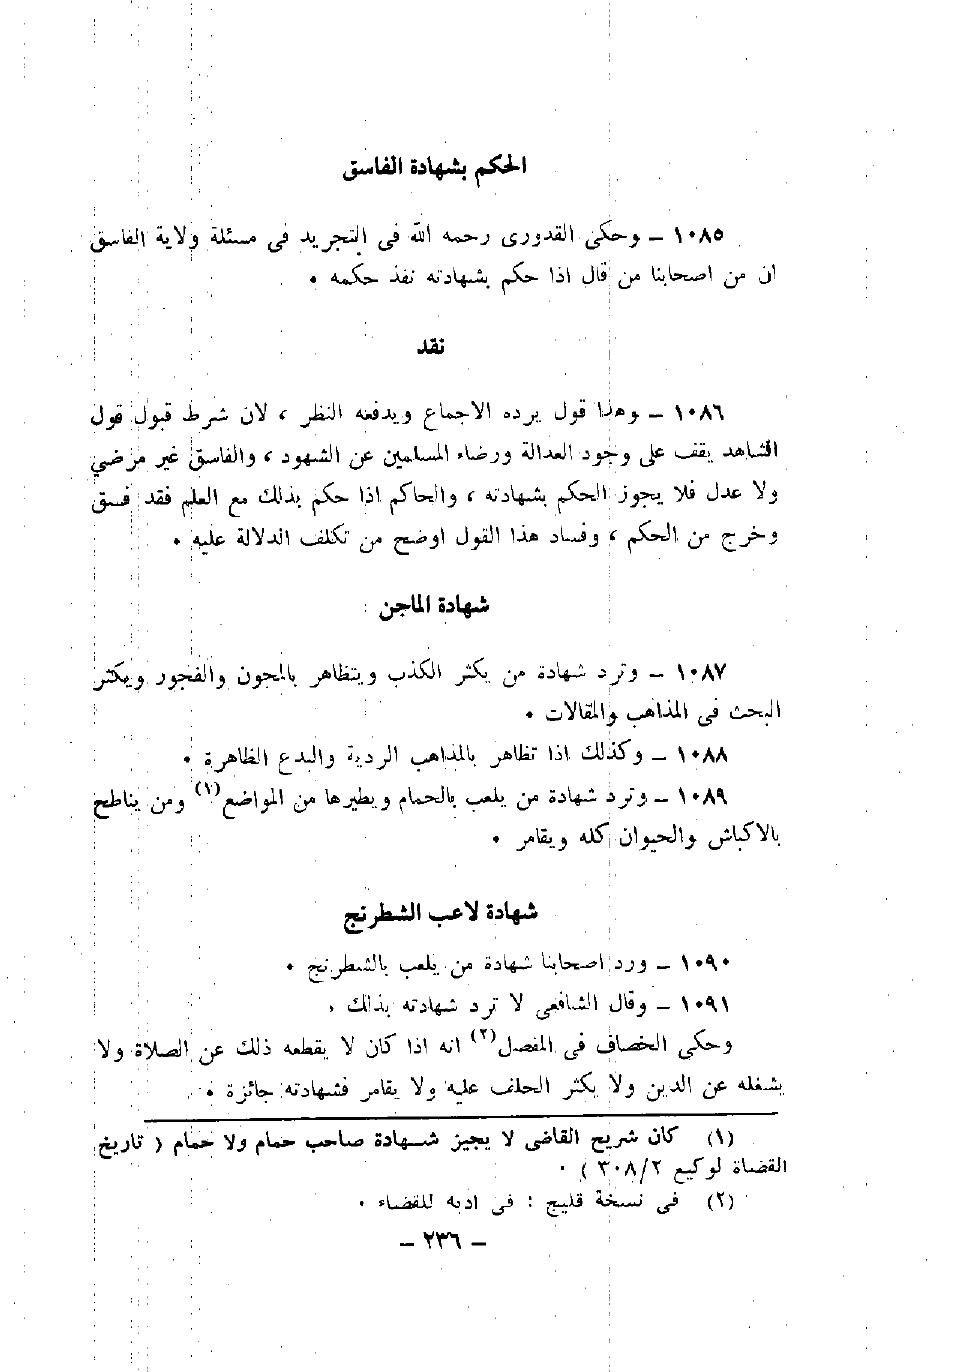 الحكم بشهادة الفاسق
١٠٨٥ ــ وحكى القدورى رحمه الله فى التجريد فى مسئلة ولاية الفاسق
ان من اصحابنا من قال اذا حكم بشهادته نفذ حكمه ٠
نقد
١٠٨٦ ــ وهذا قول يرده الاجماع ويدفعه النظر ، لان شرط قبول قول
الشاهد يقف على وجود العدالة ورضاء المسلمين عن الشهود ، والفاسق غير مرضي
ولا عدل فلا يجوز الحكم بشهادته ، والحاكم اذا حكم بذلك مع العلم فقد فسق
وخرج من الحكم ، وفساد هذا القول اوضح من تكلف الدلالة عليه ٠
شهادة الماجن
١٠٨٧ ــ وترد شهادة من يكثر الكذب ويتظاهر بالمجون والفجور ويكثر
البحث فى المذاهب والمقالات ٠
١٠٨٨ ــ وكذلك اذا تظاهر بالمذاهب الردية والبدع الظاهرة ٠
١٠٨٩ ــ وترد شهادة من يلعب بالحمام ويطيرها من المواضع(١) ومن يناطح
بالاكباش والحيوان كله ويقامر ٠
شهادة لاعب الشطرنج
١٠٩٠ ــ ورد اصحابنا شهادة من يلعب بالشطرنج ٠
١٠٩١ ــ وقال الشافعى لا ترد شهادته بذلك ٠
وحكى الخصاف فى المفصل(٢) انه اذا كان لا يقطعه ذلك عن الصلاة ولا
يشغله عن الدين ولا يكثر الحلف عليه ولا يقامر فشهادته جائزة ٠
(١) كان شريح القاضى لا يجيز شهادة صاحب حمام ولا حمام ( تاريخ
القضاة لوكيع ٣٠٨/٢ ) ٠
(٢) فى نسخة قليج : فى ادبه للقضاء ٠
ــ ٢٣٦ ــ